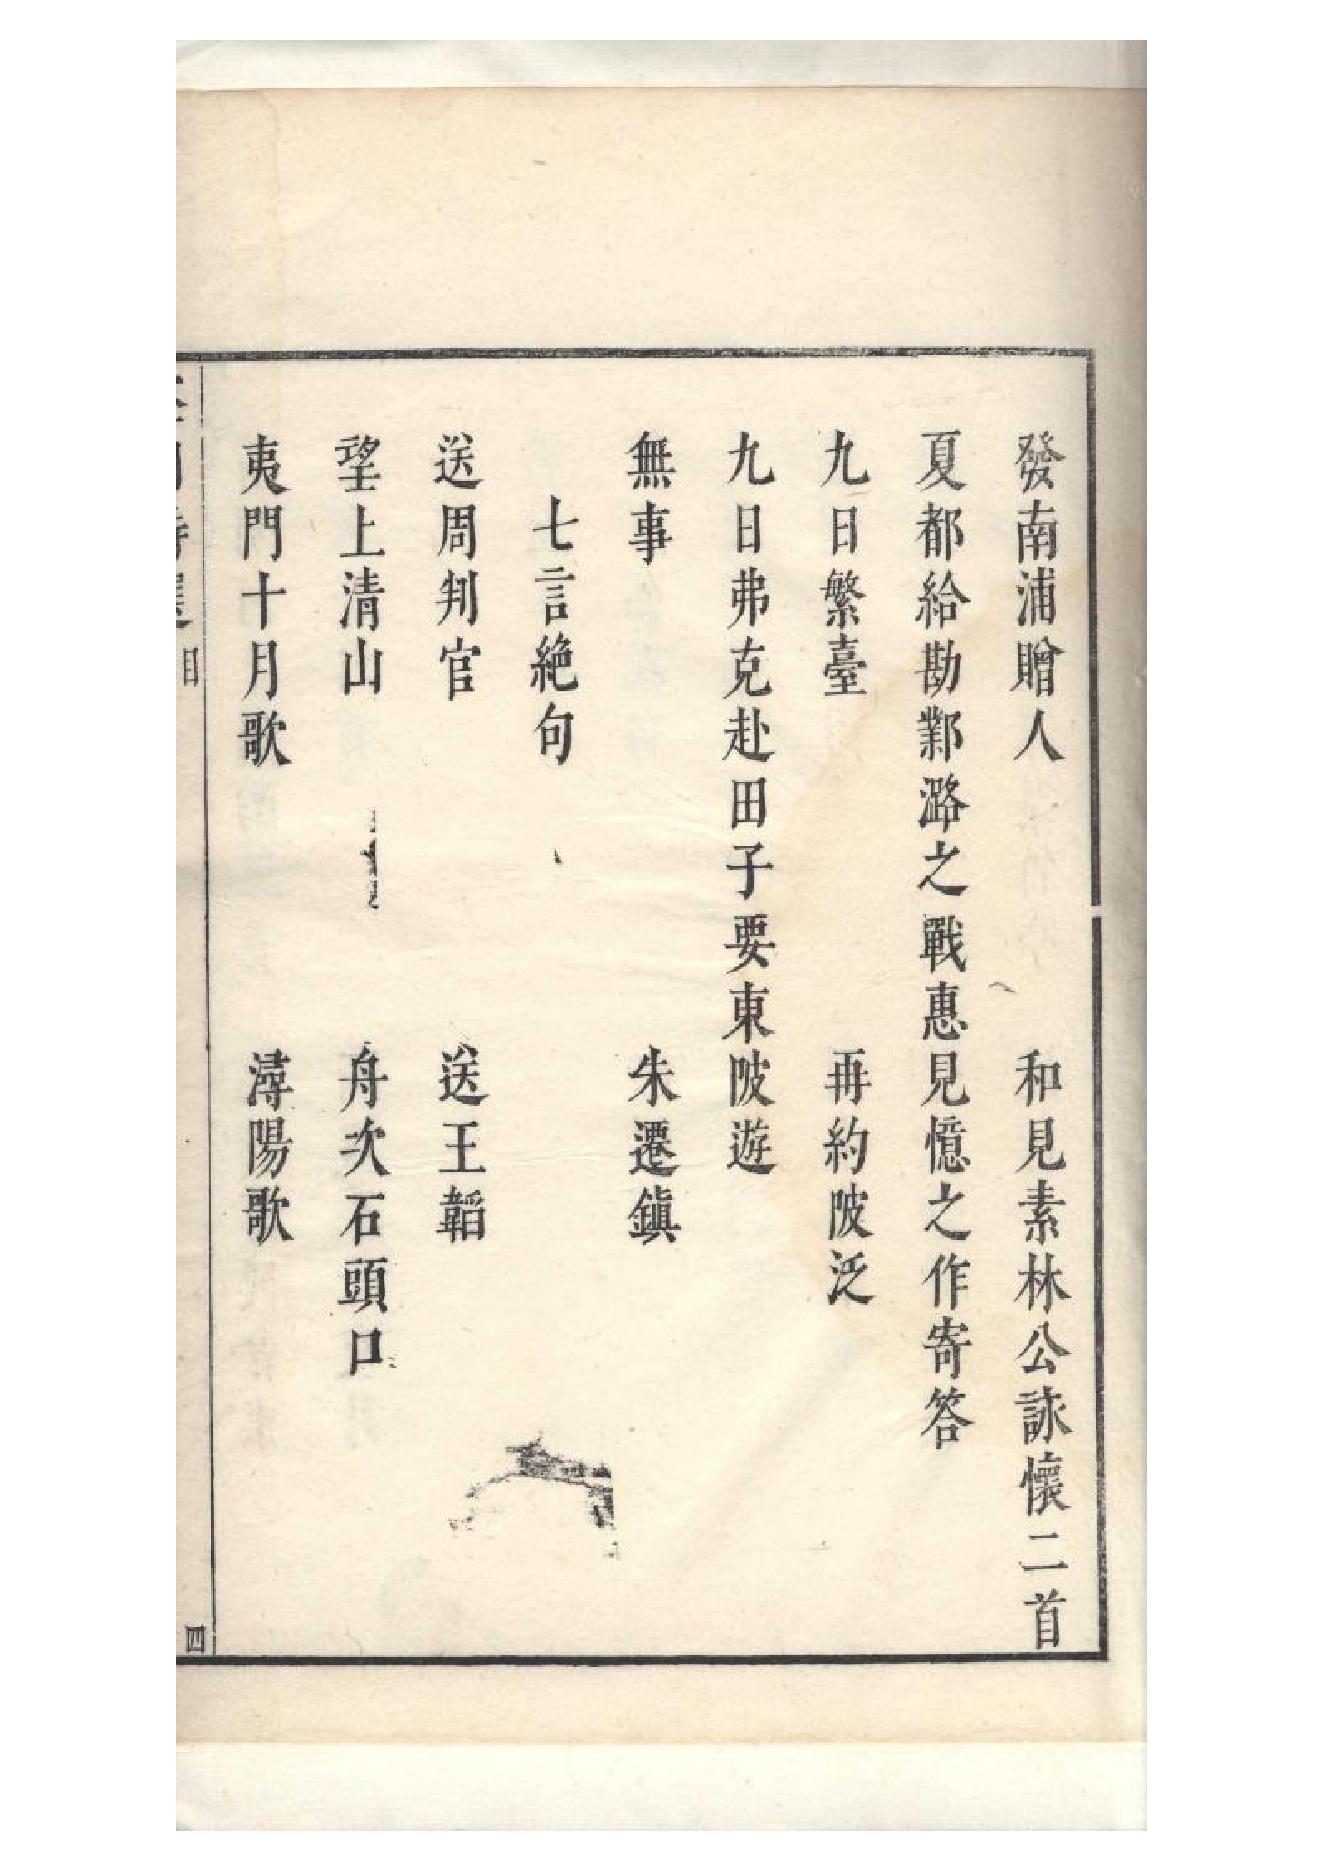 發南浦贈人　和見素林公詠懷二首
夏都給勘鄴潞之戰惠見憶之作寄答
九日繁臺　再約陂泛
九日弗克赴田子要東陂遊
無事　朱遷鎮
七言絕句
送周判官　送王韜
望上清山　舟次石頭口
夷門十月歌　潯陽歌
目
四